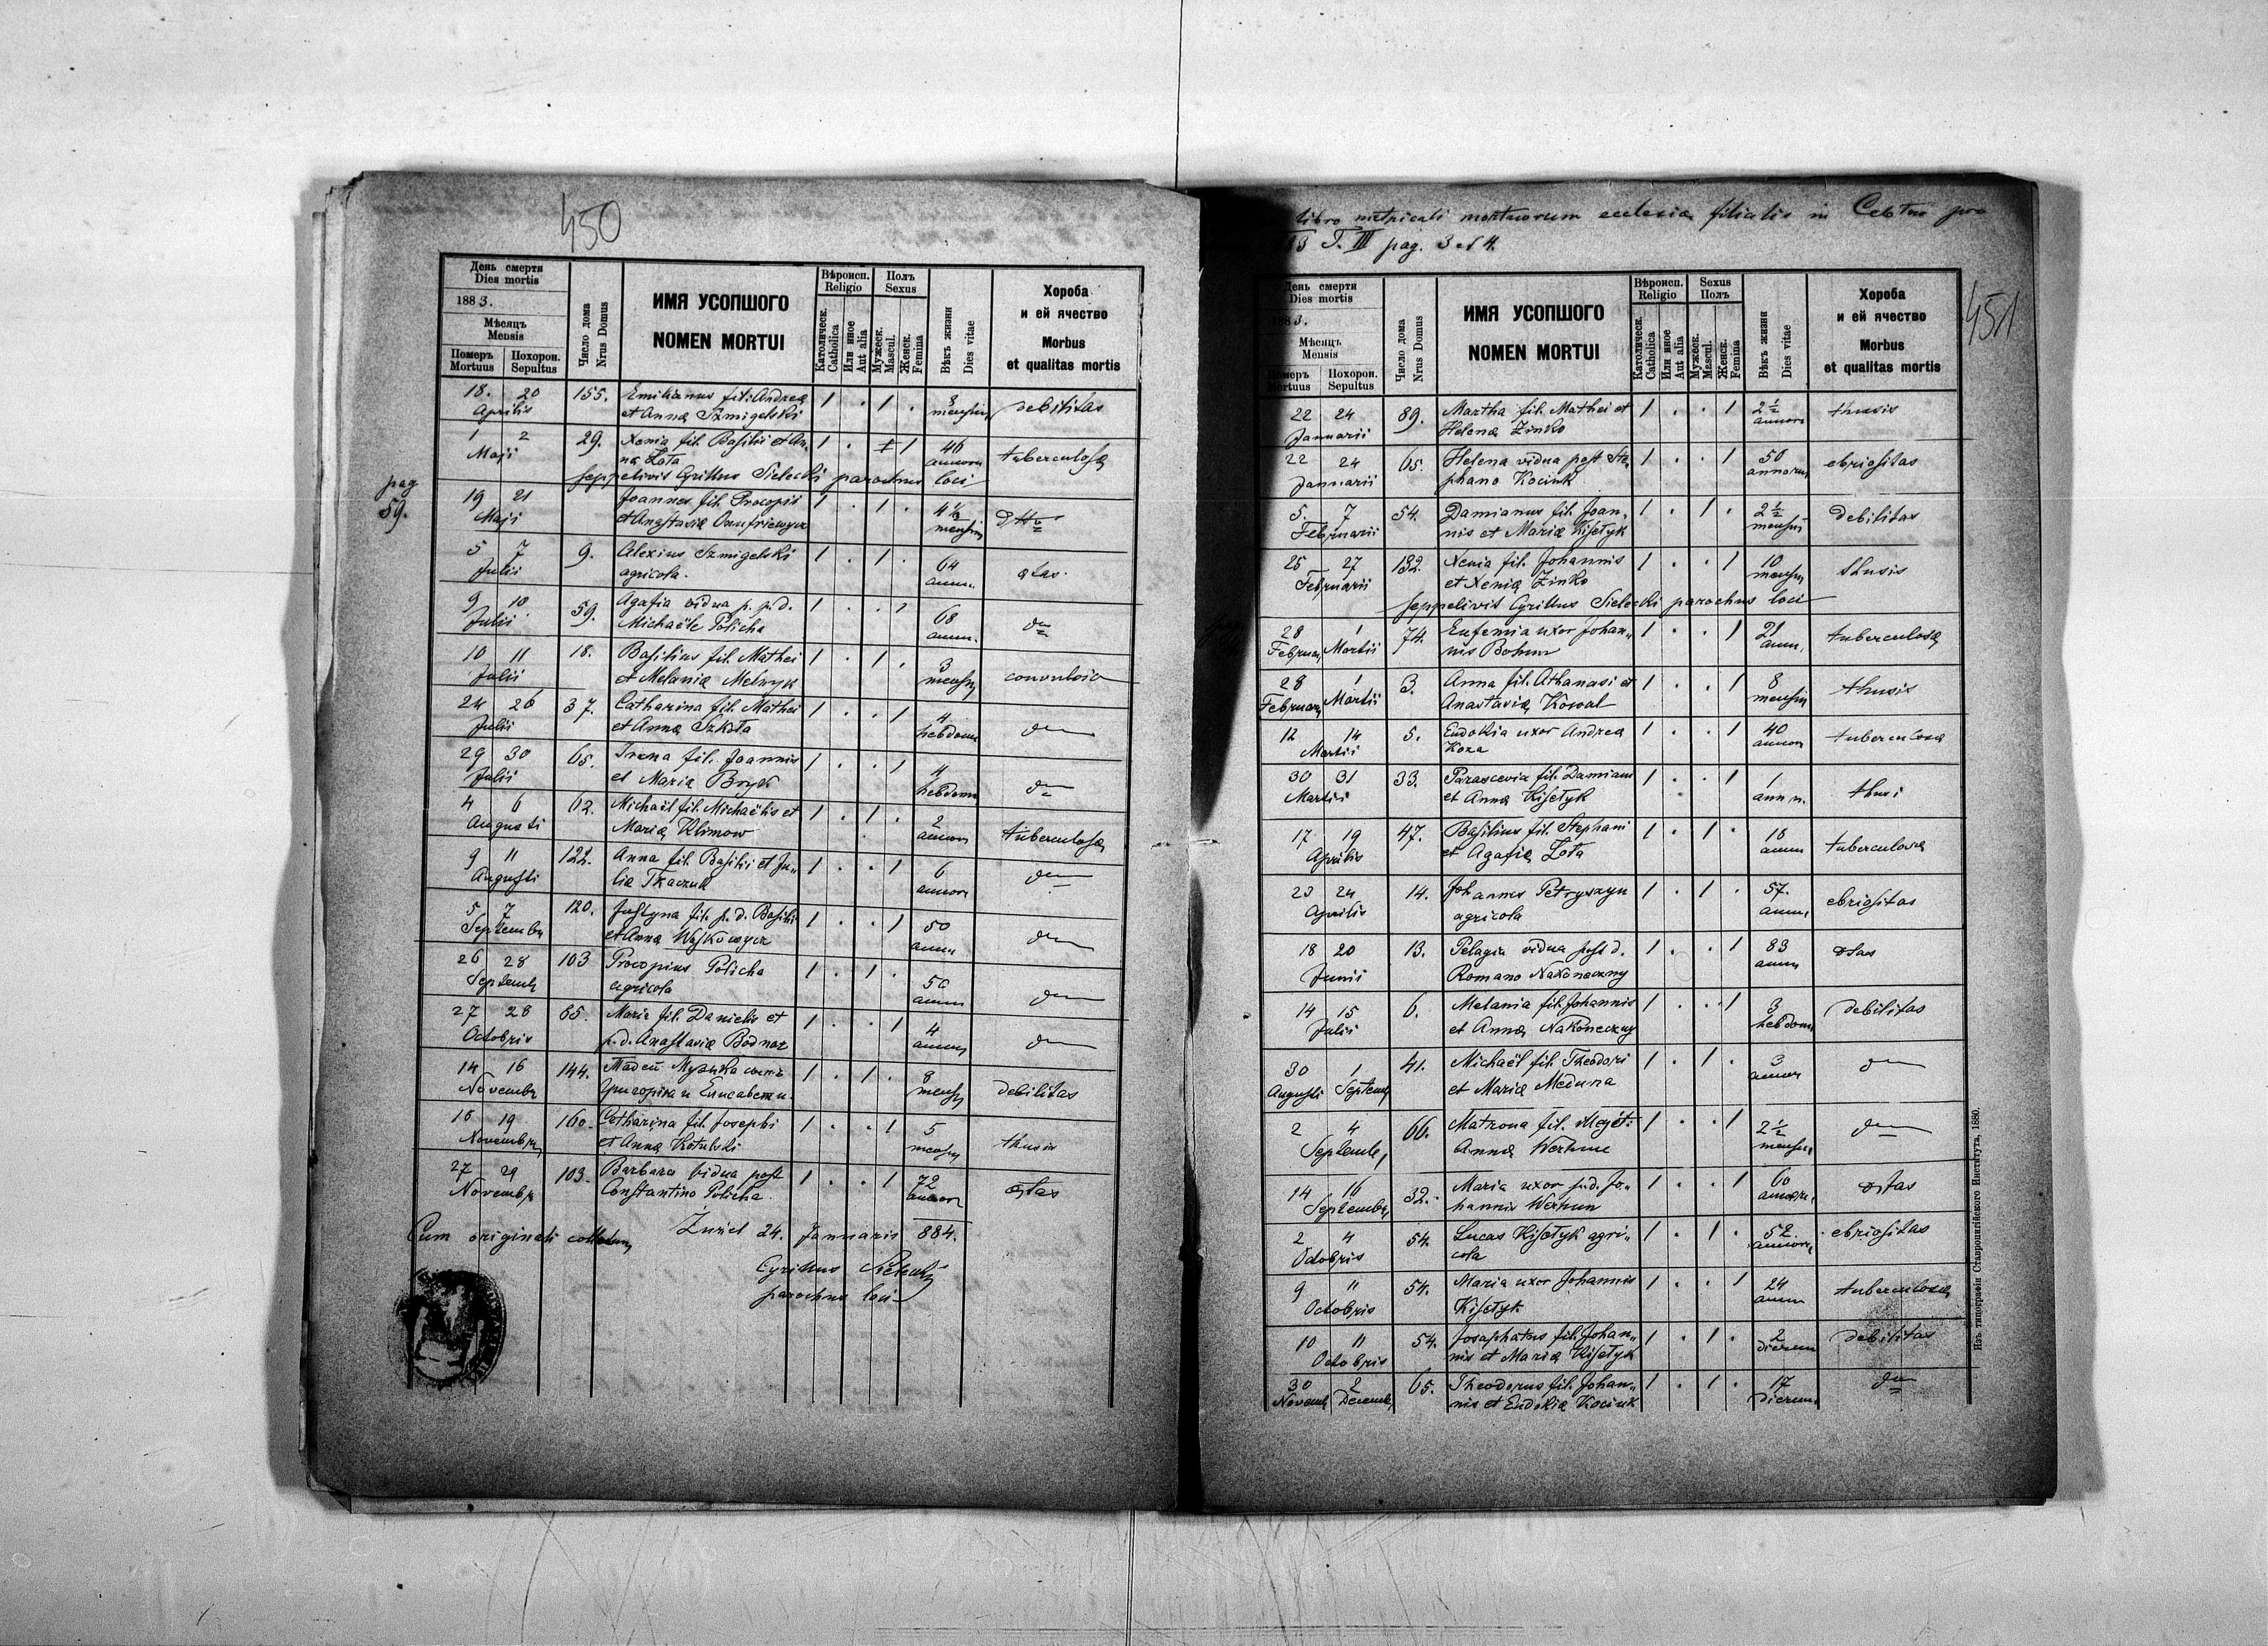 450
День смерти
Dies mortis
1883.
Мѣсяцъ
Mensis
Померъ Mortuus
Похорон. Sepultus
Число дома
Nrus Domus
ИМЯ УСОПШОГО
NOMEN MORTUI
Вѣроисп.
Religio
Католическ.
Catholica
Или иное
Aut alia
Полъ
Sexus
Мужеск.
Mascul.
Женск.
Femina
Вѣкъ жизни
Dies vitae
Хороба
и ей ячество
Morbus
et qualitas mortis
18. 20 155. Emilianus fil. Andreæ 1 . 1 . 8
Aprilis et Annæ Szmigelski mensium debilitas
1 2 29. Xenia fil. Basilii et An- 1 . 1 46
Maji næ Zota annorum tuberculosa
seppelivit Cyrillus Sielecki parochus loci
pag
59.
19 21 Joannes fil. Procopii 1 . 1 . 4 ½
Maji et Anastasiæ Onufriewycz mensium
5 7 9. Alexius Szmigelski 1 . 1 . 64
Julii agricola. annor. ætas
9 10 59. Agafia vidua p. p. d. 1 . . 1 68
Julii Michaële Policha annor.
10 11 18. Basilius fil. Mathei 1 . 1 . 3
Julii et Melaniæ Melnyk mensium convulsio
24 26 37. Catharina fil. Mathei 1 . . 1 4
Julii et Annæ Szkota hebdom
29 30 65. Irena fil. Joannis 1 . . 1 4
Julii et Mariæ Bryk hebdom
4 6 62. Michaël fil. Michaëlis et 1 . 1 . 2
Augusti Mariæ Klimow annor tuberculosa
9 11 122. Anna fil. Basilii et Ju- 1 . . 1 6
Augusti liæ Tkaczuk annor
5 7 120. Justyna fil. p. d. Basilii 1 . . 1 50
Septembr et Annæ Wojkowycz annor
26 28 103 Procopius Policha 1 . 1 . 50
Septemb agricola annor
27 28 65. Maria fil. Danielis et 1 . . 1 4
Octobris p. d. Anastasiæ Bodnar annor
14 16 144. Тадей Музыка сынъ 1 . 1 . 8
Novembr Григорія и Елисавети. mensium debilitas
18 19 160. Catharina fil. Josephi 1 . . 1 5
Novembr et Annæ Kotulski mensium thusis
27 29 103. Barbara vidua post 1 . . 1 72
Novembr Constantino Policha. annor ætas
Cum originali collatum Żużel 24. Januarii 884.
Cyrillus Sielecki
parochus loci
libro metricali mortuorum ecclesiæ filialis in pro
T. III pag. 3 et 4.
451
День смерти
Dies mortis
1883.
Мѣсяцъ
Mensis
Померъ Mortuus
Похорон. Sepultus
Число дома
Nrus Domus
ИМЯ УСОПШОГО
NOMEN MORTUI
Вѣроисп.
Religio
Католическ.
Catholica
Или иное
Aut alia
Sexus
Полъ
Мужеск.
Mascul.
Женск.
Femina
Вѣкъ жизни
Dies vitae
Хороба
и ей ячество
Morbus
et qualitas mortis
22 24 89. Martha fil. Mathei et 1 . . 1 2 ½ thusis
Januarii Helenæ Zinko annor
22 24 65. Helena vidua post Ste- 1 . . 1 50 ebriositas
Januarii phano Kociuk annorum
5. 7 54. Damianus fil. Joan- 1 . 1 . 2 ½ debilitas
Februarii nis et Mariæ Kisełyk mensium
25 27 132. Xenia fil. Johannis 1 . . 1 10 thusis
Februarii et Xeniæ Zinko mensium
seppelivit Cyrillus Sielecki parochus loci
28 1 74. Eufemia uxor Johan- 1 . . 1 21 tuberculosa
Februar Martii nis Bohun annor.
28 1 3. Anna fil. Athanasi et 1 . . 1 8 thusis
Februar Martii Anastasiæ Kowal mensium
12 14 5. Eudokia uxor Andreæ 1 . . 1 40 tuberculosa
Martii Koza annor
30 31 33. Parascevia fil. Damiani 1 . . 1 1 thusi
Martii et Annæ Kisełyk ann
17 19 47. Basilius fil. Stephani 1 . 1 . 18 tuberculosa
Aprilis et Agafiæ Zota annor
23 24 14. Johannes Petryszyn 1 . 1 . 57. ebriositas
Aprilis agricola annor
18 20 13. Pelagia vidua post d. 1 . . 1 83 ætas
Junii Romano Nakoneczny annor
14 15 6. Melania fil. Johannis 1 . . 1 3 debilitas
Julii et Annæ Nakoneczny hebdom
30 1 41. Michaël fil. Theodori 1 . 1 . 3
Augusti Septemb et Mariæ Meduna annor
2 4 66. Matrona fil. 1 . . 1 2 ½
Septemb Annæ Werhun mensium
14 16 32. Maria uxor p. d. Jo- 1 . . 1 60 ætas
Septembr hannis Werhun annor
2 4 54. Lucas Kisełyk agri- 1 . 1 . 52 ebriositas
Octobris cola annor
9 11 54. Maria uxor Johannis 1 . . 1 24 tuberculosa
Octobris Kisełyk annor
10 11 54. Josaphatus fil. Johan- 1 . 1 . 2 debilitas
Octobris nis et Mariæ Kisełyk dierum
30 2 65. Theodorus fil. Johan- 1 . 1 . 17
Novemb Decemb nis et Eudokiæ Kociuk dierum
Изъ типографіи Ставропигійского Института, 1880.